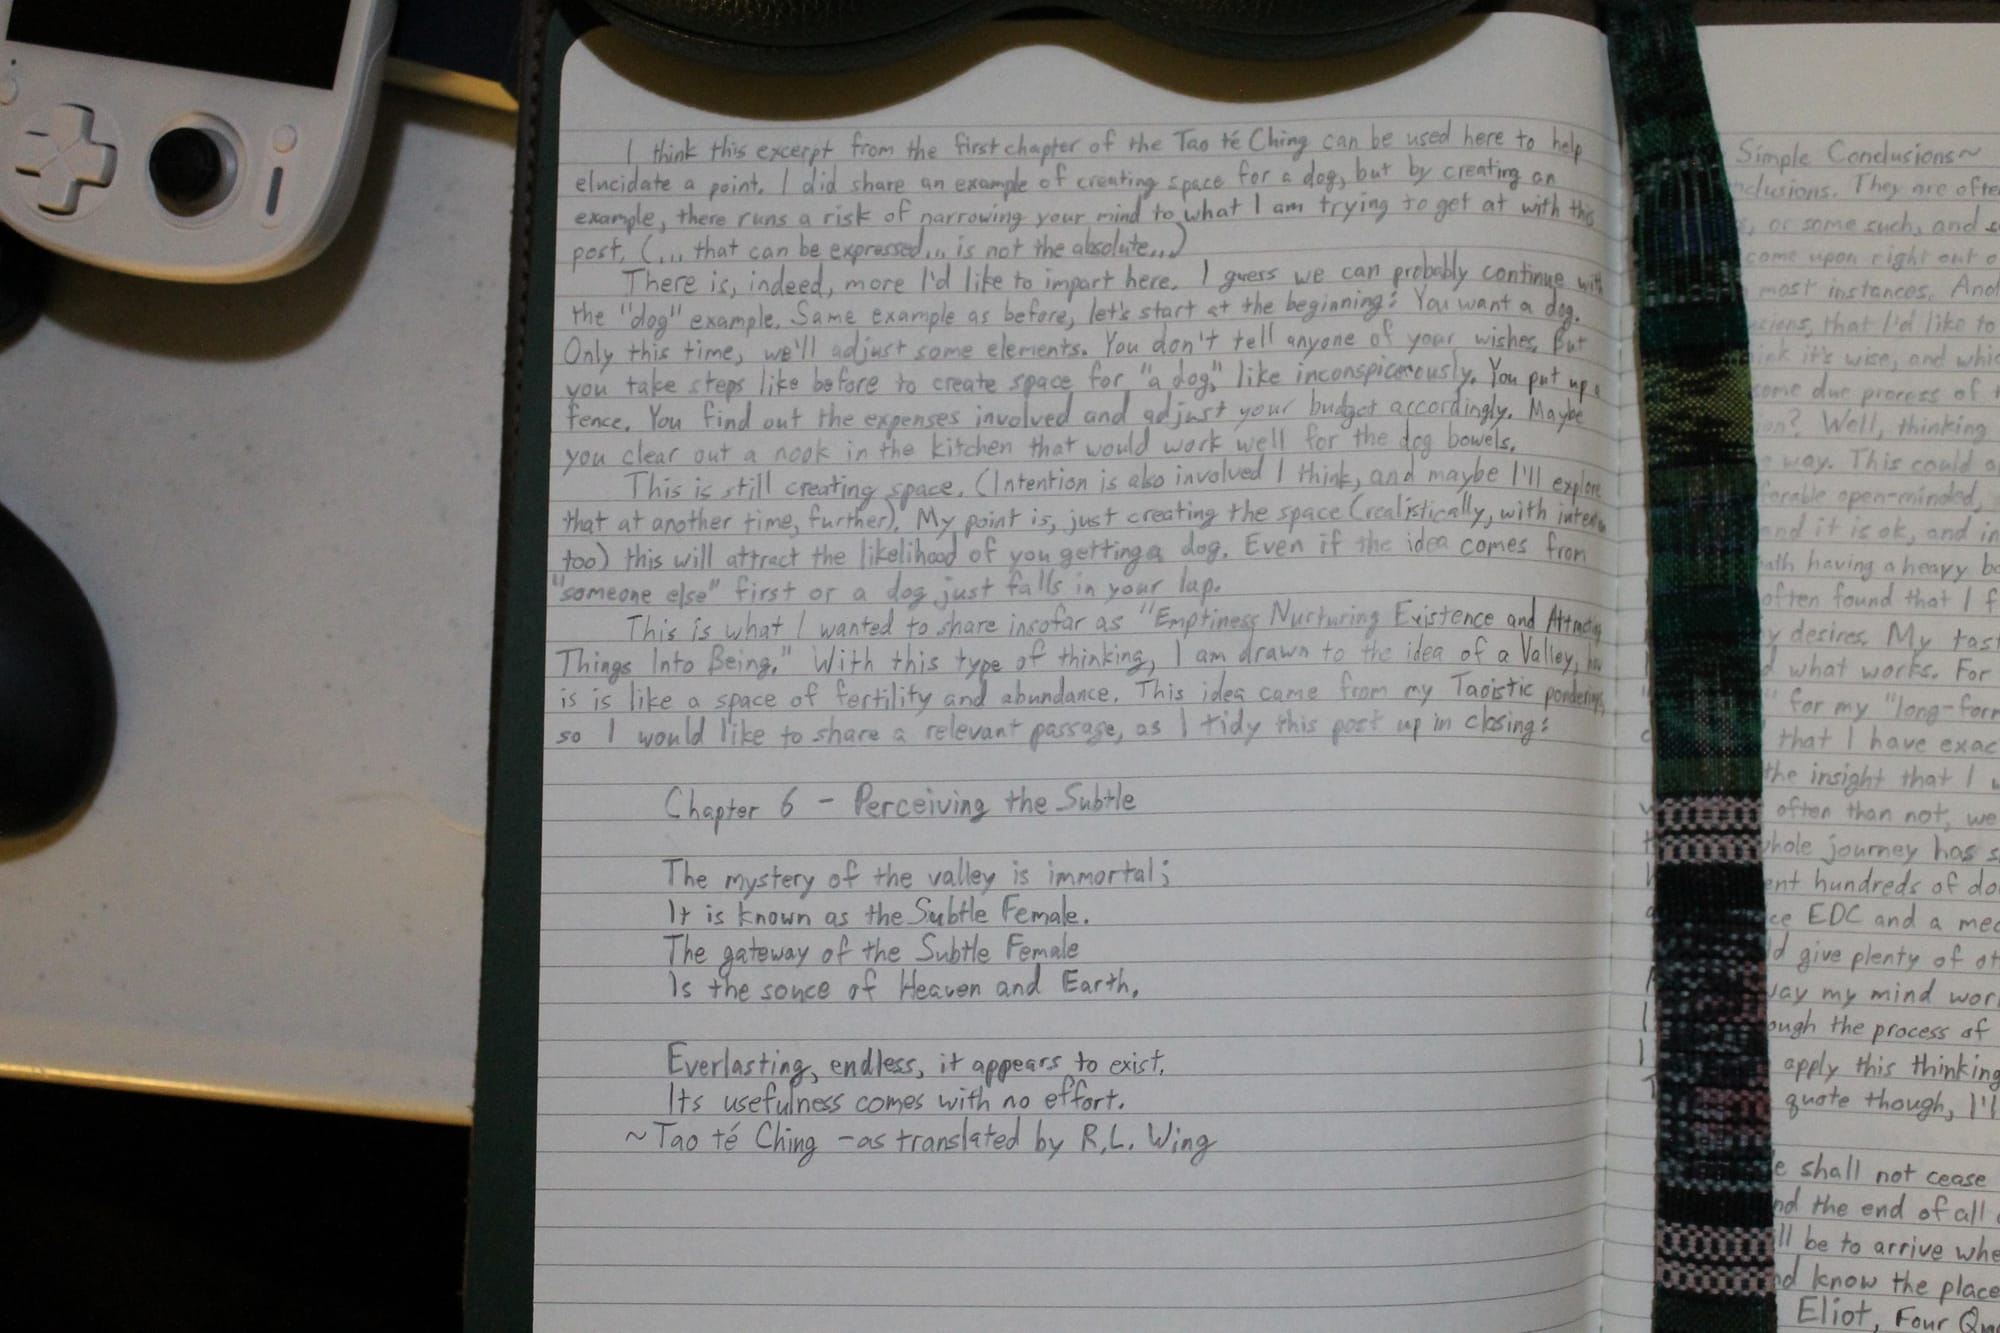 I think this excerpt from the first chapter of the Tao té Ching can be used here to help
elucidate a point. I did share an example of creating space for a dog, but by creating an
example, there runs a risk of narrowing your mind to what I am trying to get at with this
post. (... that can be expressed... is not the absolute...)
There is, indeed, more I'd like to impart here. I guess we can probably continue with
the "dog" example. Same example as before, let's start at the beginning: You want a dog.
Only this time, we'll adjust some elements. You don't tell anyone of your wishes. But
you take steps like before to create space for "a dog," like inconspicuously. You put up a
fence. You find out the expenses involved and adjust your budget accordingly. Maybe
you clear out a nook in the kitchen that would work well for the dog bowels.
This is still creating space. (Intention is also involved I think, and maybe I'll explore
that at another time, further). My point is, just creating the space (realistically, with
too) this will attract the likelihood of you getting a dog. Even if the idea comes from
"someone else" first or a dog just falls in your lap.
This is what I wanted to share insofar as "Emptiness Nurturing Existence and Attracting
Things Into Being." With this type of thinking, I am drawn to the idea of a Valley,
is is like a space of fertility and abundance. This idea came from my Taoistic ponderings,
so I would like to share a relevant passage, as I tidy this post up in closing:
Chapter 6 - Perceiving the Subtle
The mystery of the valley is immortal;
It is known as the Subtle Female.
The gateway of the Subtle Female
Is the sonce of Heaven and Earth.
Everlasting, endless, it appears to exist.
Its usefulness comes with no effort.
~Tao té Ching - as translated by R.L. Wing
Simple Conclusions~
nclusions. They are ofte
, or some such, and
come upon right out o
most instances. And
sions, that I'd like to
ink it's wise, and whi
some due process of
on? Well, thinking
way. This could a
ferable open-minded,
and it is ok, and in
ath having a heavy b
often found that I f
y desires. My tas
d what works. For
" for my "long-for
that I have exac
the insight that I
often than not, we
whole journey has s
ent hundreds of do
ce EDC and a me
ld give plenty of ot
way my mind wor
ough the process of
apply this thinking
quote though, I'll
e shall not cease
nd the end of all
ll be to arrive whe
nd know the place
Eliot, Four Qu